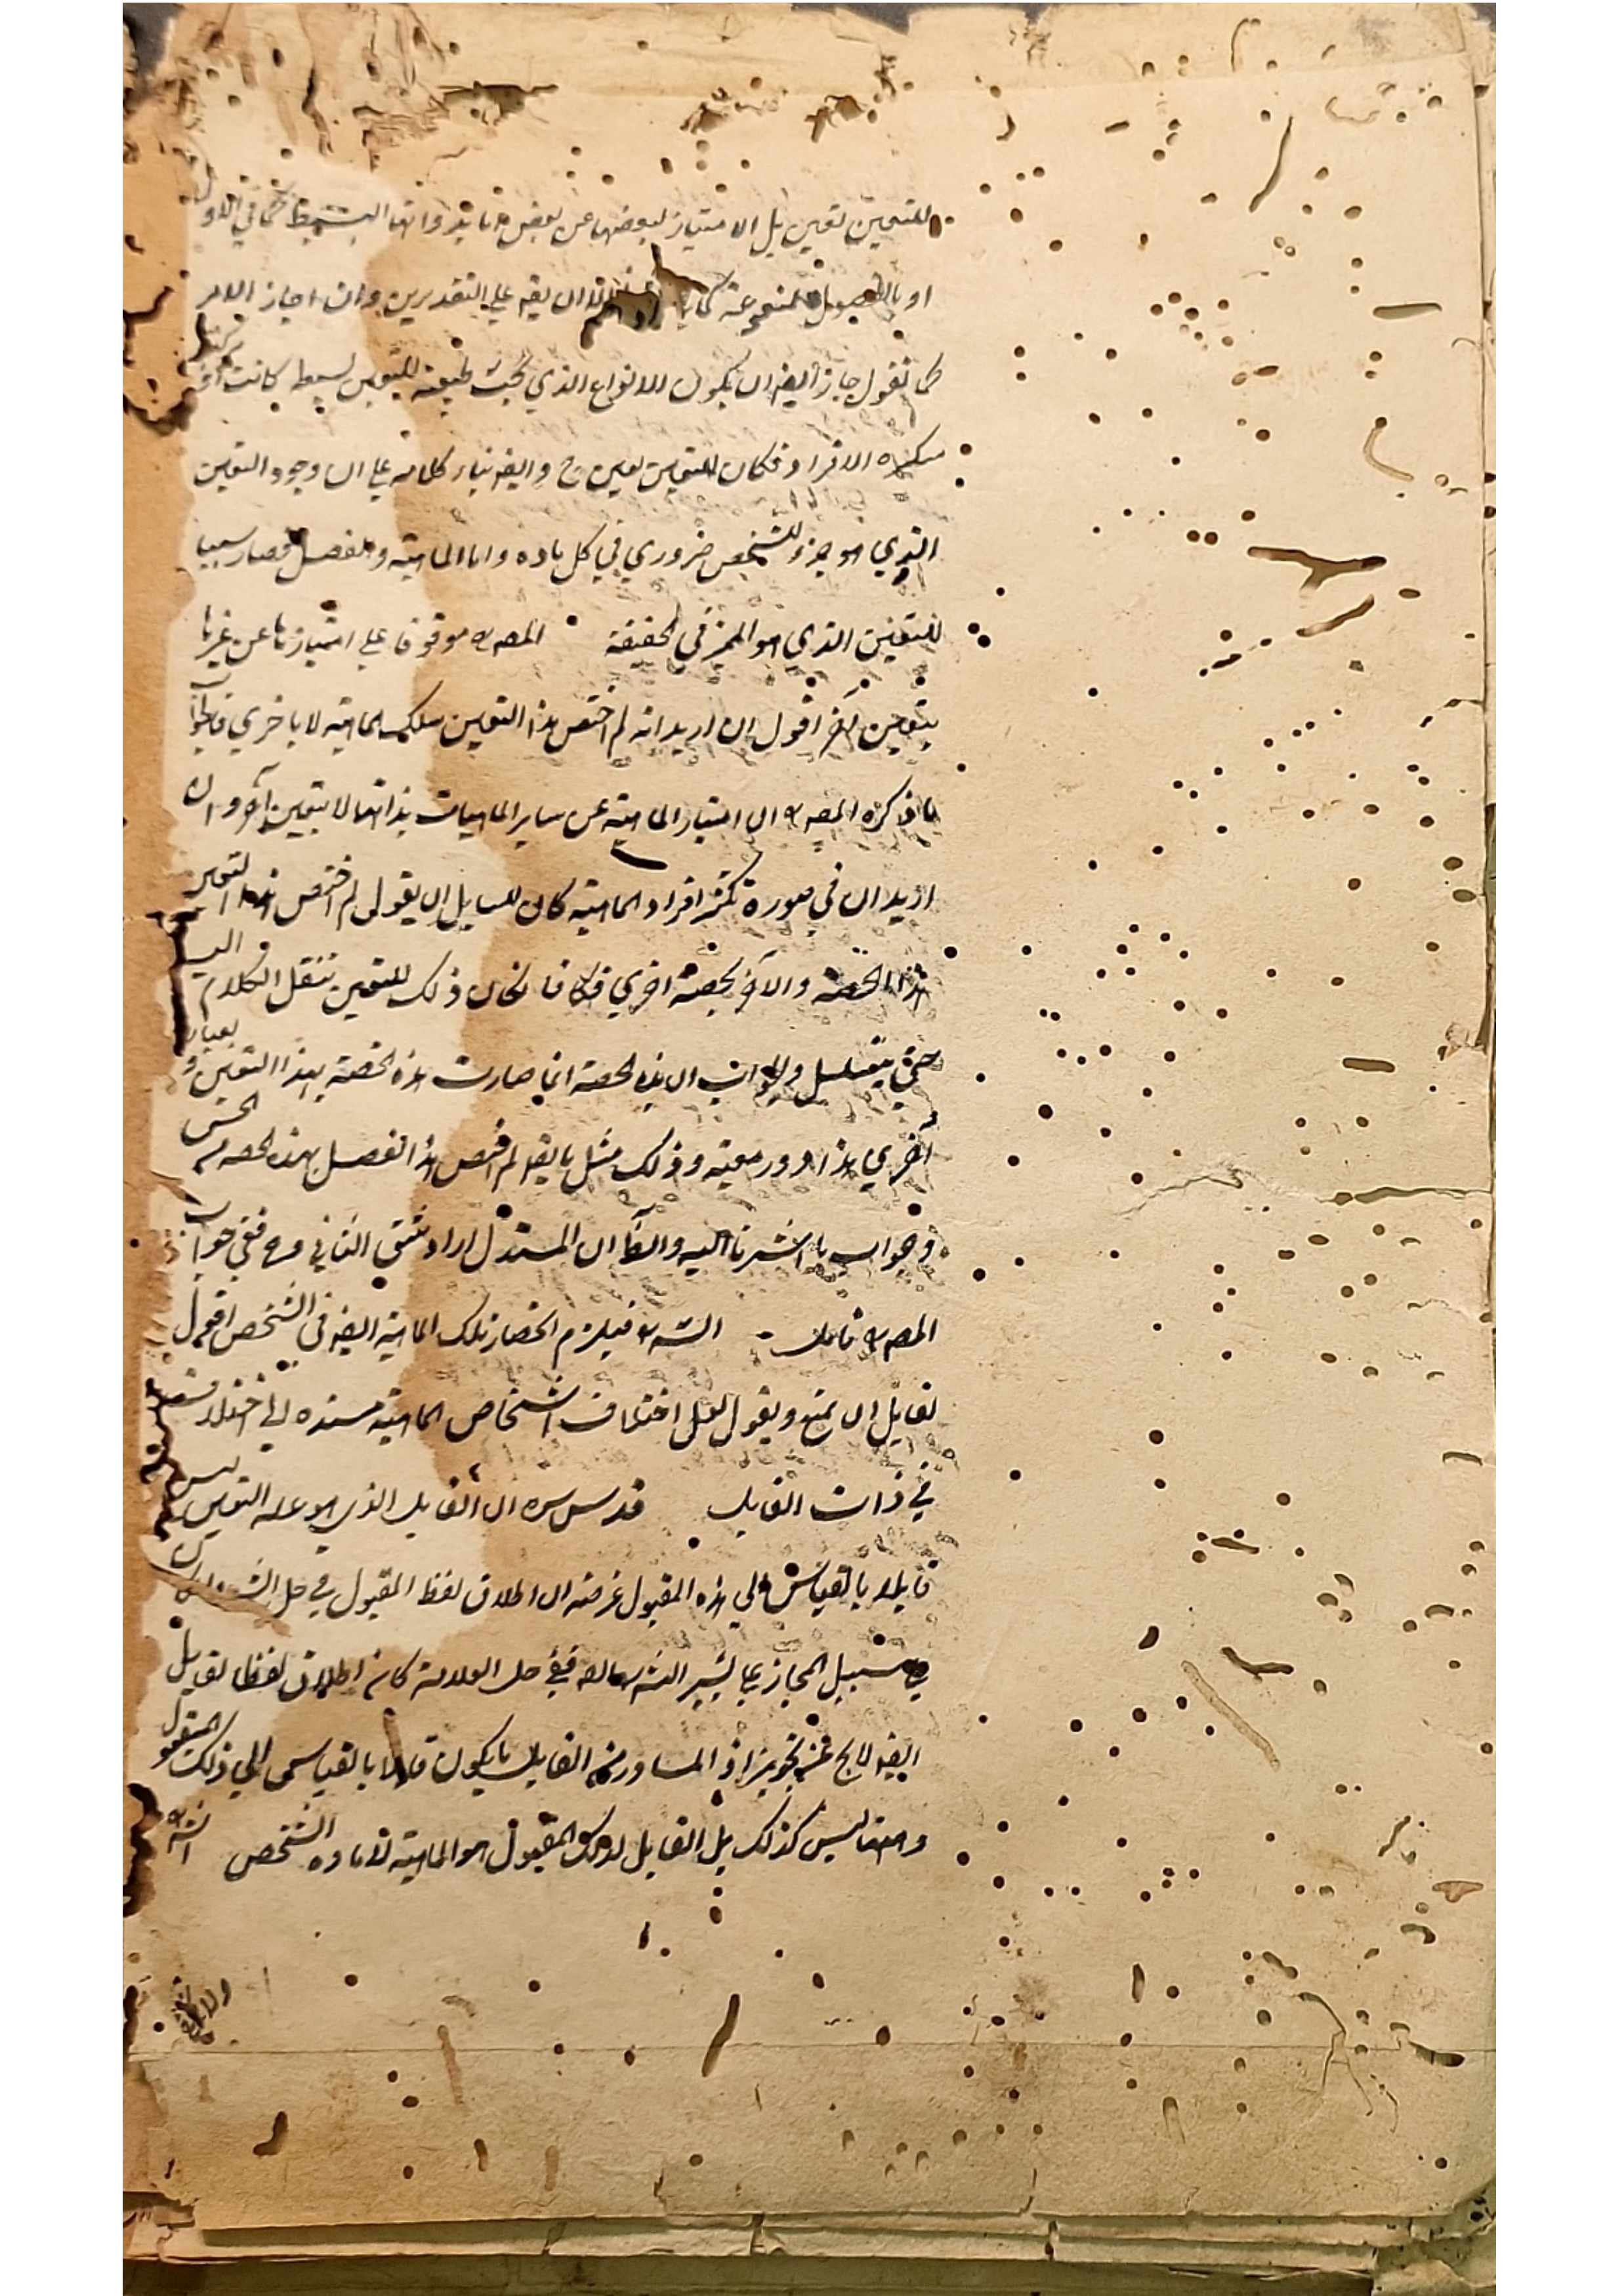 للتعين تعين بل الامتياز لبعضها عن بعض اما بذواتها البسيطة كما في الاول
او بالفصول المنجمعة كما الا ان يقه علي التقديرين وان اجاز الامر
كما نقول جاز ايضه ان يكون للانواع الذي تحت طبيعة التعين بسيطه كانت او
متكثره الافراد فكان للتعين تعين ح وايضه بناء كلامه علي ان وجود التعين
الذي هو جزء للشخص ضروري في كل ماده واما الماهية والفصل فصار سببا
للتعين الذي هو المميز في الحقيقة المصه موقوفا علي امتيازها عن غيرها
بتعين آخر اقول ان اريد انه لم اختص هذا التعين بتلك الماهية لا باخري فالجواب
ما ذكره المصه ان امتياز الماهية عن ساير الماهيات بذاتها لا بتعين آخر وان
اريد ان في صورة تكثر افراد الماهية كان للسايل ان يقول لم اختص هذا التعين
بهذا الحصة والآخر بحصة اخري فكان ذلك للتعين ننقل الكلام اليه
حتي يتسلسل والجواب ان هذه الحصة انما صارت هذه الحصة بهذا التعين وبعبارة
اخري هذا دور معية وذلك مثل ما يقه لم اختص هذا الفصل بهذه الحصه من الجنس
وجوابه ما اشرنا اليه والظ ان المستدل اراد شق الثاني وح ففي جواب
المصه تامل الشه فيلزم انحصار تلك الماهية ايضه في الشخص اقول
لقايل ان يمنع ويقول لعل اختلاف اشخاص الماهية مسنده الي اختلاف
في ذات القابل قدس سره ان القابل الذي هو علة التعين ليس
قابلا بالقياس الي هذه المقبول غرضه ان اطلاق لفظ المقبول في حل
علي سبيل المجاز كما يشير الشه اليه ففي حل العلامة كانه اطلاق لفظ القابل
ايضه لايخ عن تجويز اذ المتبادر من القابل ما يكون قابلا بالقياس الي ذلك المقبول
وههنا ليس كذلك بل القابل لذلك المقبول هو الماهية لا مادة الشخص الشه